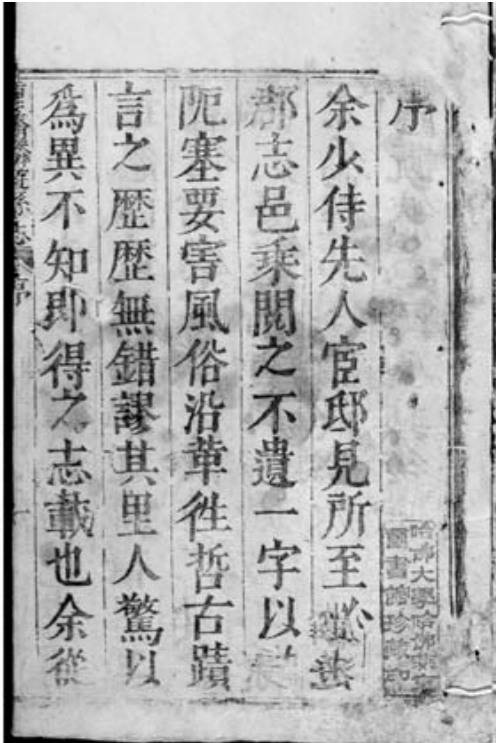 序
余少侍先人宦邸見所至
郡志邑乘閱之不遺一字以
阨塞要害風俗沿革徃哲古蹟
言之歷歷無錯謬其里人驚以
為異不知即得之志載也余從
縣志 序
哈佛大學哈佛燕京
圖書館珍藏印